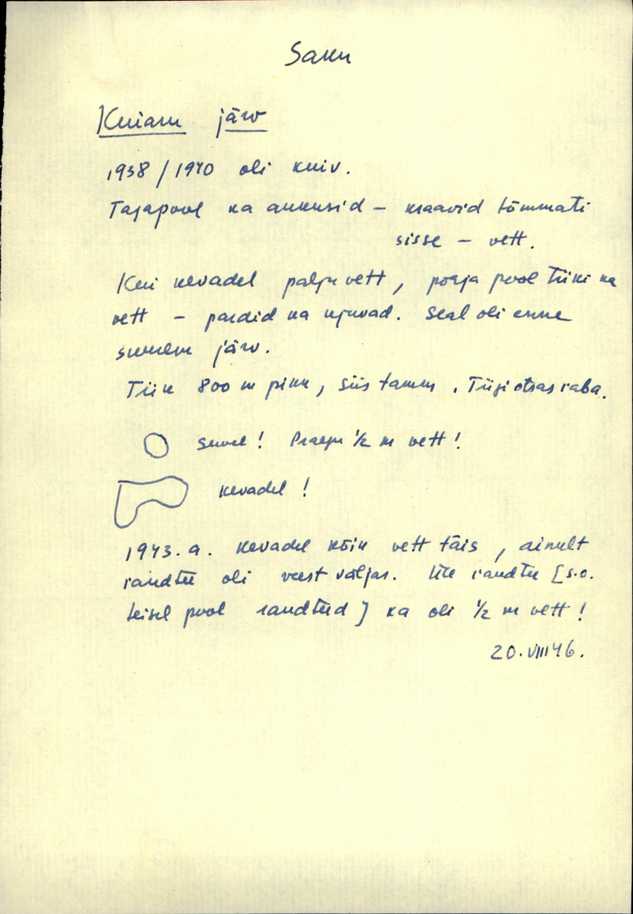 Saku
järv
1938/1940 oli kuiv.
Tagapool ka aukusid – kraavid tõmmati
sisse – vett.
Kui kevadel palju vett, põhja pool tiiki ka
vett – pardid ka ujuvad. Seal oli enne
suurem järv.
Tiik 800 m pikk, siis tamm. Tiigi otsas raba.
Suvel! Praegu ½ m vett!
Kevadel!
1943.a. kevadel kõik vett täis, ainult
raudtee oli veest väljas. Üle raudtee [s.o.
teisel pool raudteed] ka oli ½ m vett!
20.VIII 46.